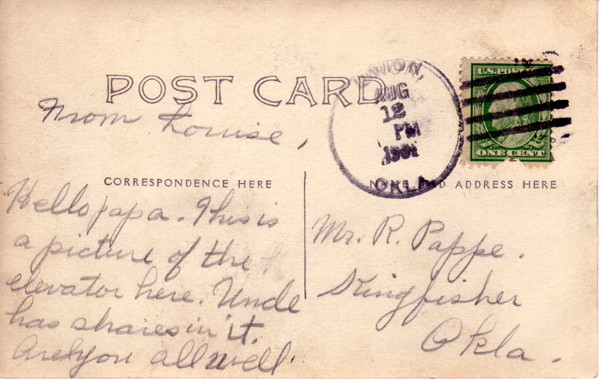 POST CARD
From Louise,
UNION,
AUG
12
PM
OKLA.
U.S. POSTAGE
ONE CENT
CORRESPONDENCE HERE
NAME AND ADDRESS HERE
Hello papa. This is
a picture of the
elevator here. Uncle
has shares in it.
Are you all well.
Mr. R. Pappe.
Kingfisher
Okla.